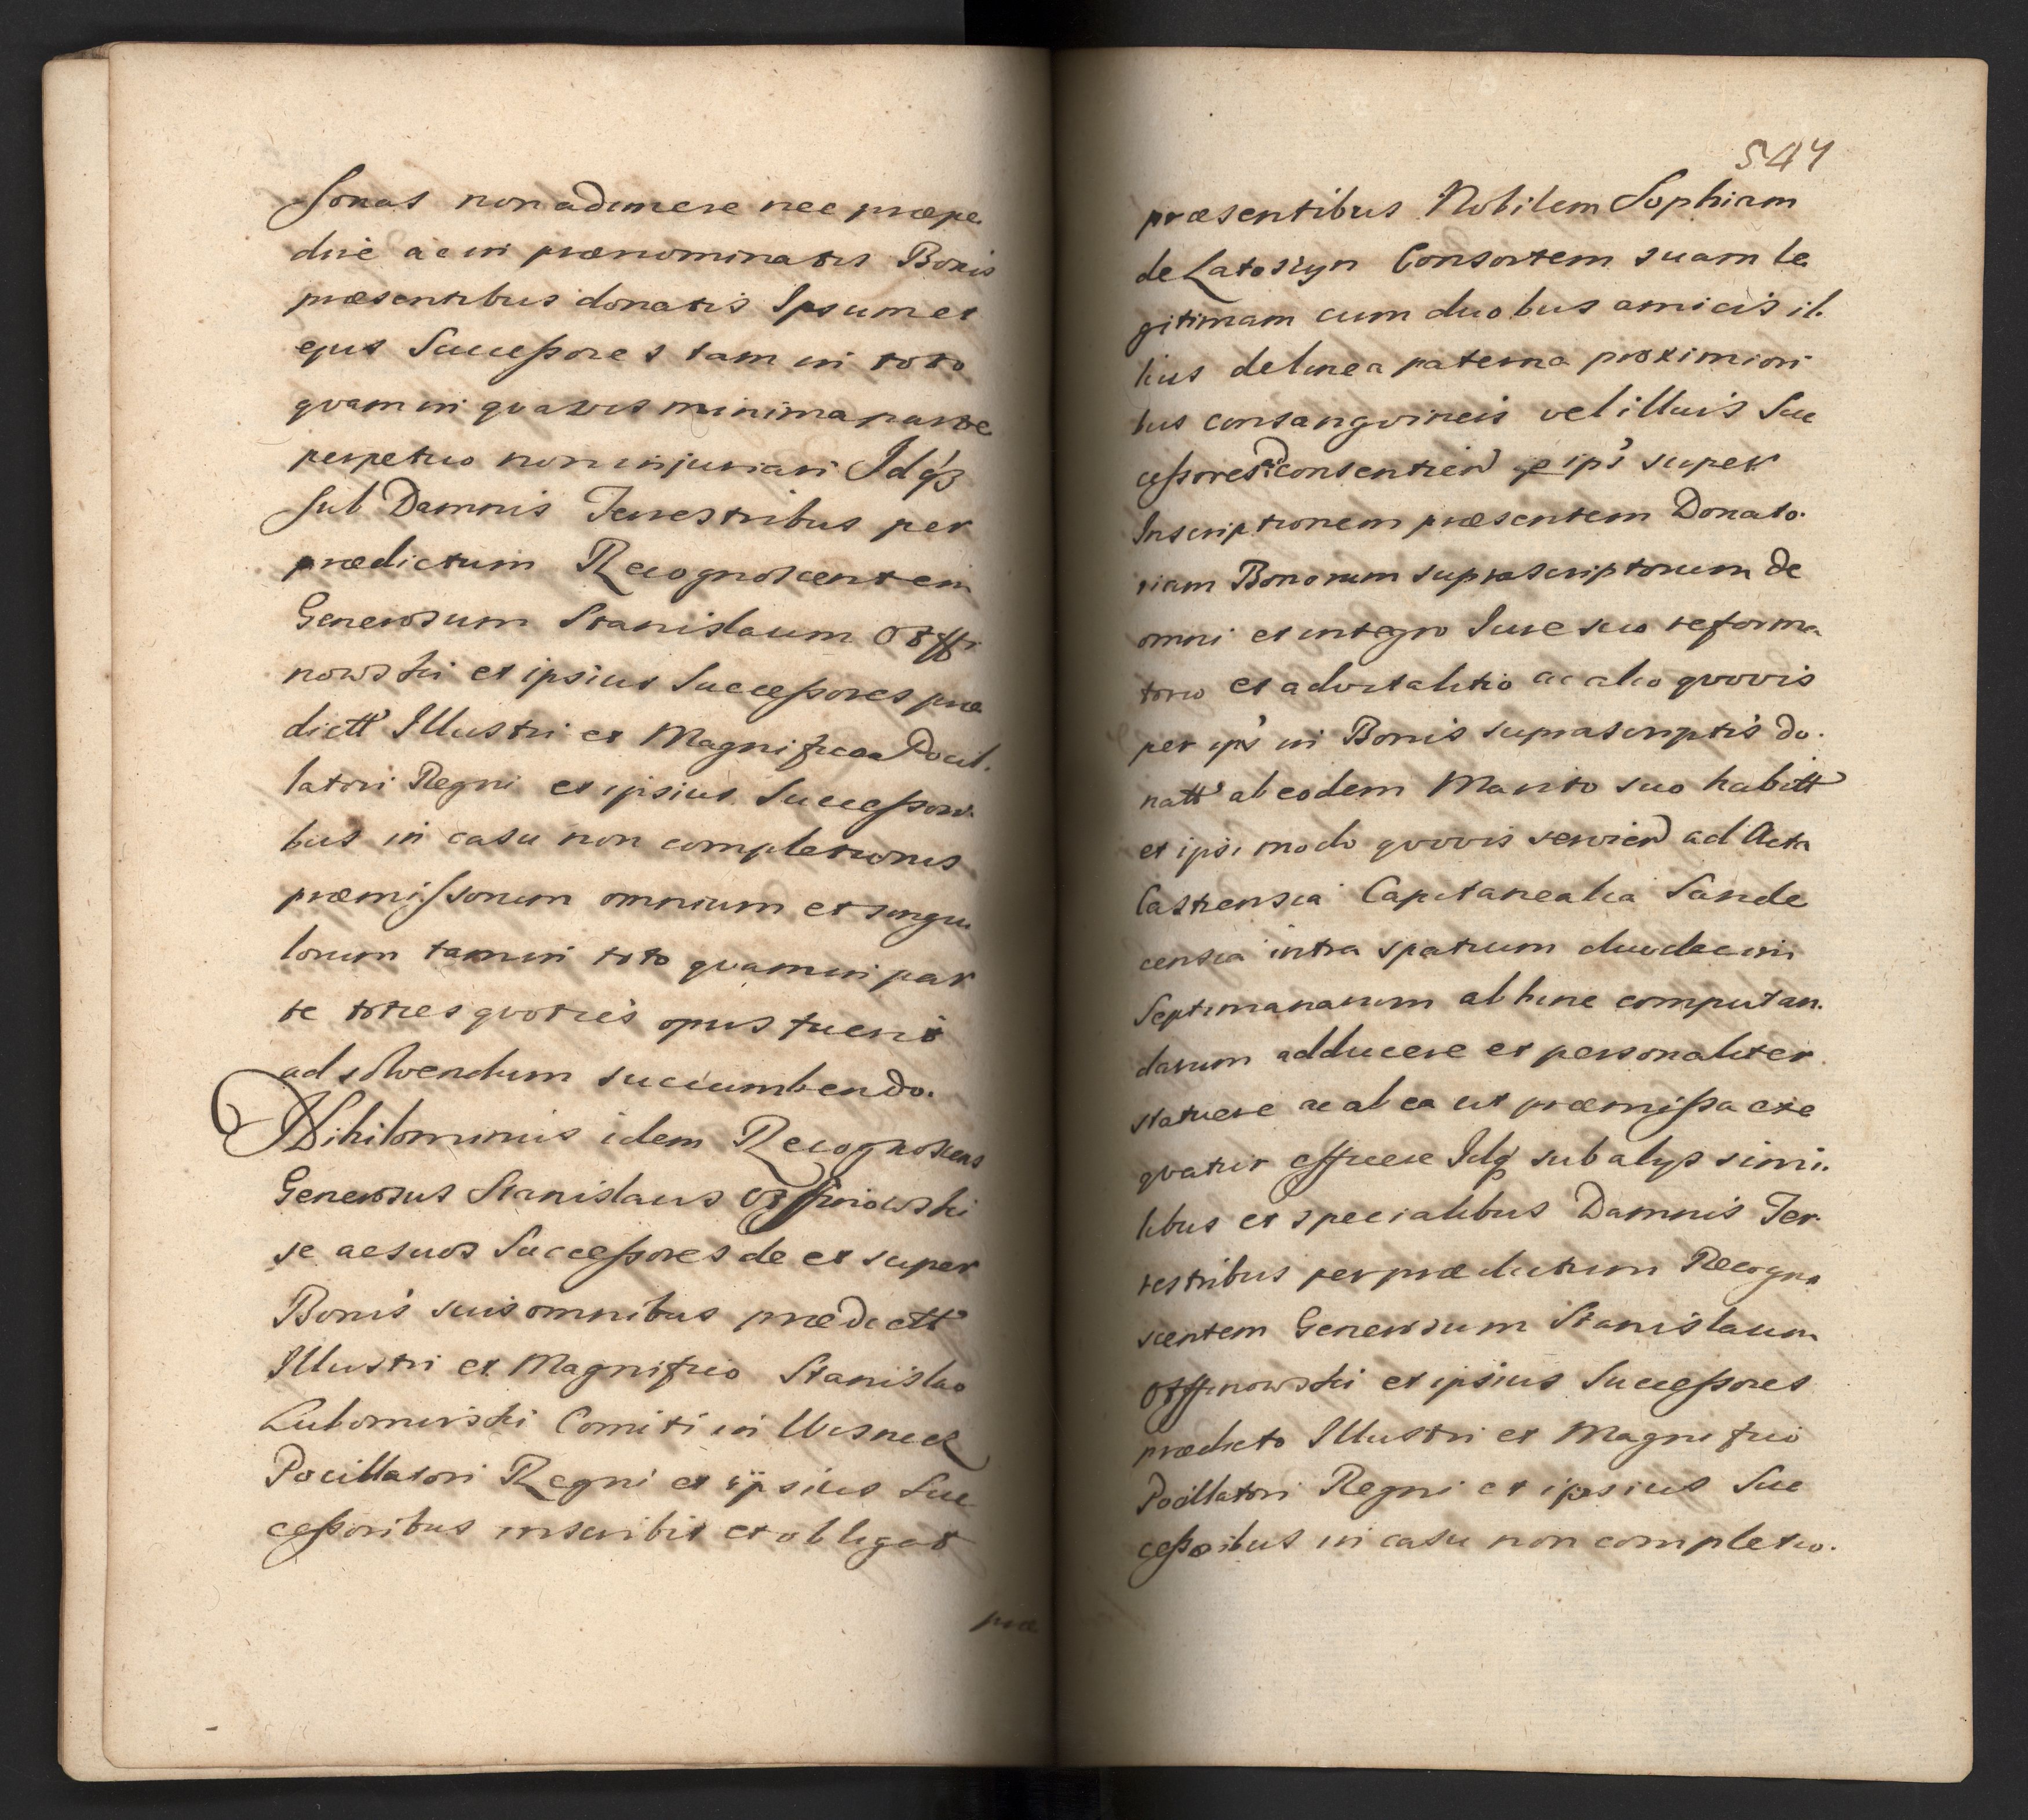 sonas non adimere nec præpe
dire ac in prænominatis Bonis
præsentibus donatis Ipsum et
ejus Successores tam in toto
quam in quavis minima parte
perpetuo non injuriari Idq3
sub Damnis Terrestribus per
prædictum Recognoscentem
Generosum Stanislaum Ossi
nowski et ipsius Successores præ
dictt Illustri et Magnifico Pocil.
latori Regni et ipsius Successori.
bus in casu non completionis
præmissorum omnium et singu
lorum tam in toto quam in par
te toties quoties opus fuerit
ad solvendum succumbendo.
Nihilominus idem Recognoscens
Generosus Stanislaus Ossinowski
se ac suos Successores de et super
Bonis suis omnibus prædictt
Illustri et Magnifico Stanislao
Lubomirski Comiti in Wisnicz
Pocillatori Regni et ipsius Suc
cessoribus inscribit et obligat
præ
547
præsentibus Nobilem Sophiam
de Latoszyn Consortem suam le
gitimam cum duobus amicis il.
lius de linea paterna proximiori
bus consangvineis vel illius Suc
cessores consentien p ips super
Inscriptionem præsentem Donato.
riam Bonorum suprascriptorum de
omni et integro Jure suo reforma
torio et advitalitio ac alio qvovis
per ips in Bonis suprascriptis do.
natt ab eodem Marito suo habitt
et ipsi modo qvovis servien ad Acta
Castrensia Capitanealia Sande
censia intra spatium duodecim
Septimanarum abhinc computan.
darum adducere et personaliter
statuere ac ab ea ut præmissa exe
qvatur efficere Idq sub alijs simi.
libus et specialibus Damnis Ter
restribus per prædictum Recogno
scentem Generosum Stanislaum
Ossinowski et ipsius Successores
prædicto Illustri et Magnifico
Pocillatori Regni et ipsius Suc
cessoribus in casu non completio.